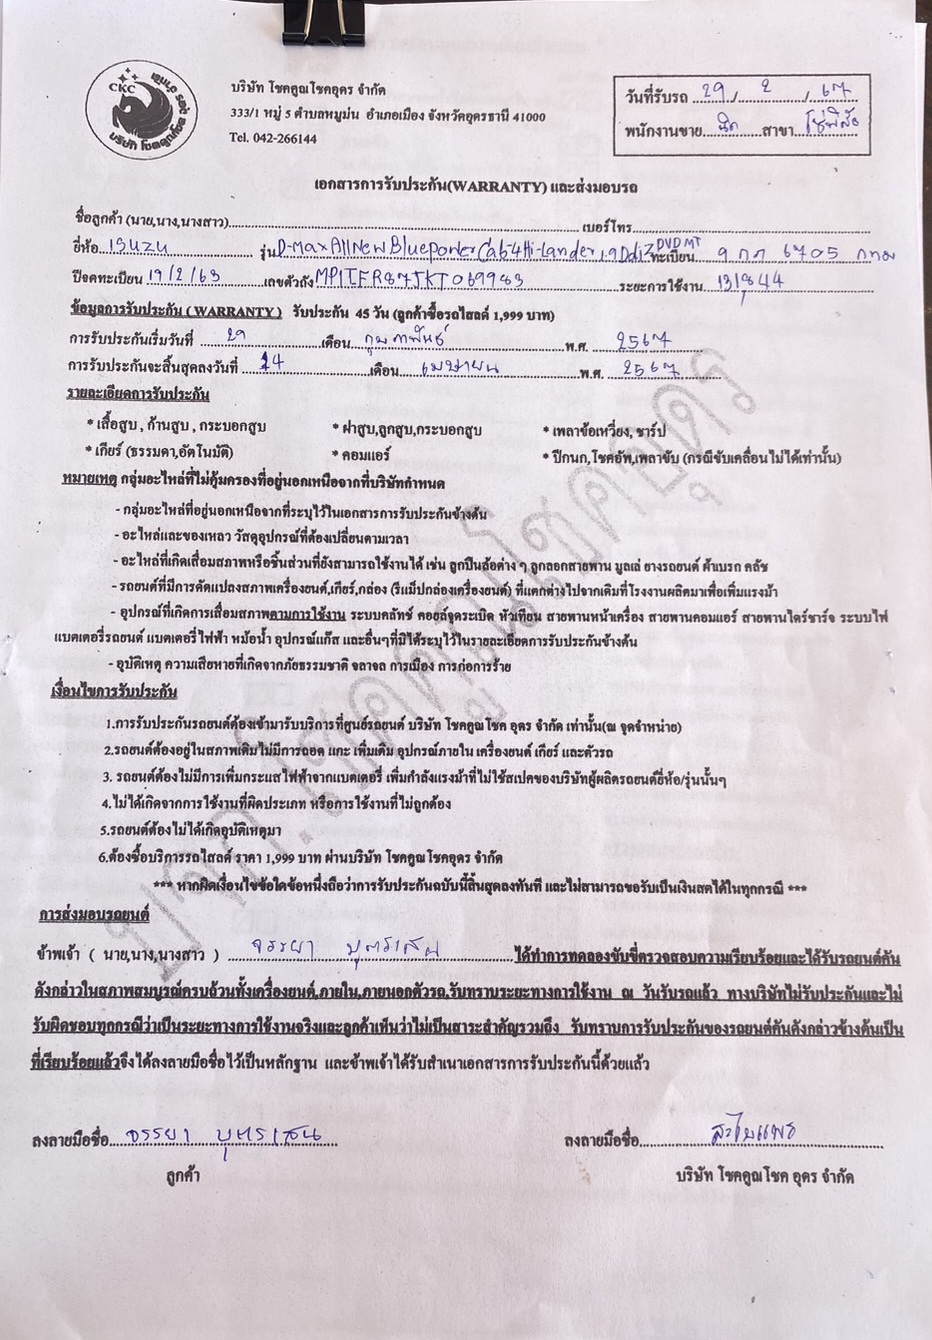 CKC
บริษัท โชคคูณโชคอุดร จำกัด
333/1 หมู่ 5 ตำบลหมูม่น อำเภอเมือง จังหวัดอุดรธานี 41000
Tel. 042-266144
วันที่รับรถ 29 / 2 / 67
พนักงานขาย สาขา
เอกสารการรับประกัน(WARRANTY) และส่งมอบรถ
ชื่อลูกค้า (นาย,นาง,นางสาว) เบอร์โทร
ยี่ห้อ ISUZU รุ่น D-Max All New Blue power Cab-4 Hi-Lander 1.9 Ddi Z DVD MT ทะเบียน 9 กภ 6705 กทม
ปีจดทะเบียน 19/2/63 เลขตัวถัง MP1TFR87JKT069983 ระยะการใช้งาน 131,844
ข้อมูลการรับประกัน ( WARRANTY ) รับประกัน 45 วัน (ลูกค้าซื้อรถไสลด์ 1,999 บาท)
การรับประกันเริ่มวันที่ 29 เดือน กุมภาพันธ์ พ.ศ. 2567
การรับประกันจะสิ้นสุดลงวันที่ 14 เดือน เมษายน พ.ศ. 2567
รายละเอียดการรับประกัน
* เสื้อสูบ , ก้านสูบ , กระบอกสูบ * ฝาสูบ,ลูกสูบ,กระบอกสูบ * เพลาข้อเหวี่ยง, ชาร์ป
* เกียร์ (ธรรมดา,อัตโนมัติ) * คอมแอร์ * ปีกนก,โชคอัพ,เพลาขับ (กรณีขับเคลื่อนไม่ได้เท่านั้น)
หมายเหตุ กลุ่มอะไหล่ที่ไม่คุ้มครองที่อยู่นอกเหนือจากที่บริษัทกำหนด
- กลุ่มอะไหล่ที่อยู่นอกเหนือจากที่ระบุไว้ในเอกสารการรับประกันข้างต้น
- อะไหล่และของเหลว วัสดุอุปกรณ์ที่ต้องเปลี่ยนตามเวลา
- อะไหล่ที่เกิดเสื่อมสภาพหรือชิ้นส่วนที่ยังสามารถใช้งานได้ เช่น ลูกปืนล้อต่าง ๆ ลูกลอกสายพาน มูลเล่ ยางรถยนต์ ผ้าเบรก คลัช
- รถยนต์ที่มีการดัดแปลงสภาพเครื่องยนต์,เกียร์,กล่อง (รีแม็ปกล่องเครื่องยนต์) ที่แตกต่างไปจากเดิมที่โรงงานผลิตมาเพื่อเพิ่มแรงม้า
- อุปกรณ์ที่เกิดการเสื่อมสภาพตามการใช้งาน ระบบคลัทช์ คอยล์จุดระเบิด หัวเทียน สายพานหน้าเครื่อง สายพานคอมแอร์ สายพานไดร์ชาร์จ ระบบไฟ
แบตเตอรี่รถยนต์ แบตเตอรี่ไฟฟ้า หม้อน้ำ อุปกรณ์แก๊ส และอื่นๆที่มิได้ระบุไว้ในรายละเอียดการรับประกันข้างต้น
- อุบัติเหตุ ความเสียหายที่เกิดจากภัยธรรมชาติ จลาจล การเมือง การก่อการร้าย
เงื่อนไขการรับประกัน
1.การรับประกันรถยนต์ต้องเข้ามารับบริการที่ศูนย์รถยนต์ บริษัท โชคคูณโชค อุดร จำกัด เท่านั้น(ณ จุดจำหน่าย)
2.รถยนต์ต้องอยู่ในสภาพเดิมไม่มีการถอด แกะ เพิ่มเติม อุปกรณ์ภายใน เครื่องยนต์ เกียร์ และตัวรถ
3. รถยนต์ต้องไม่มีการเพิ่มกระแสไฟฟ้าจากแบตเตอรี่ เพิ่มกำลังแรงม้าที่ไม่ใช้สเปคของบริษัทผู้ผลิตรถยนต์ยี่ห้อ/รุ่นนั้นๆ
4.ไม่ได้เกิดจากการใช้งานที่ผิดประเภท หรือการใช้งานที่ไม่ถูกต้อง
5.รถยนต์ต้องไม่ได้เกิดอุบัติเหตุมา
6.ต้องซื้อบริการรถไสลด์ ราคา 1,999 บาท ผ่านบริษัท โชคคูณโชคอุดร จำกัด
*** หากผิดเงื่อนไขข้อใดข้อหนึ่งถือว่าการรับประกันฉบับนี้สิ้นสุดลงทันที และไม่สามารถขอรับเป็นเงินสดได้ในทุกกรณี ***
การส่งมอบรถยนต์
ข้าพเจ้า ( นาย,นาง,นางสาว ) จรรยา บุตรเสน ได้ทำการทดลองขับขี่ตรวจสอบความเรียบร้อยและได้รับรถยนต์คัน
ดังกล่าวในสภาพสมบูรณ์ครบถ้วนทั้งเครื่องยนต์,ภายใน,ภายนอกตัวรถ,รับทราบระยะทางการใช้งาน ณ วันรับรถแล้ว ทางบริษัทไม่รับประกันและไม่
รับผิดชอบทุกกรณีว่าเป็นระยะทางการใช้งานจริงและลูกค้าเห็นว่าไม่เป็นสาระสำคัญรวมถึง รับทราบการรับประกันของรถยนต์คันดังกล่าวข้างต้นเป็น
ที่เรียบร้อยแล้วจึงได้ลงลายมือชื่อไว้เป็นหลักฐาน และข้าพเจ้าได้รับสำเนาเอกสารการรับประกันนี้ด้วยแล้ว
ลงลายมือชื่อ จรรยา บุตรเสน ลงลายมือชื่อ
ลูกค้า บริษัท โชคคูณโชค อุดร จำกัด
บจก.โชคคูณโชคอุดร